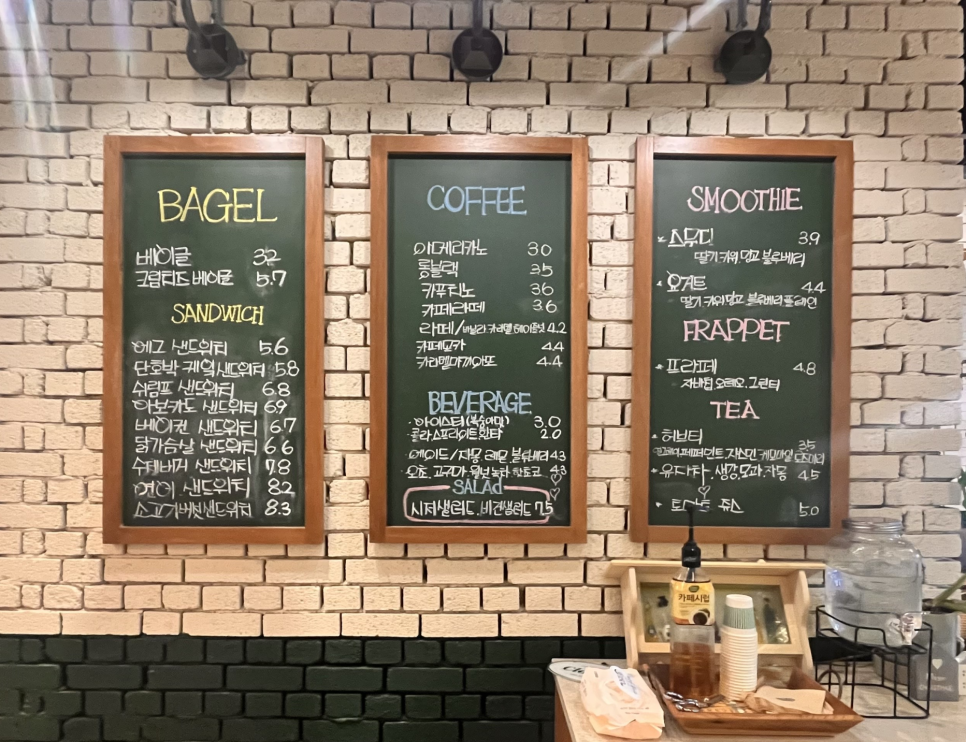 BAGEL
베이글 3.2
크림치즈 베이글 5.7
SANDWICH
에그 샌드위치 5.6
단호박 케일 샌드위치 5.8
쉬림프 샌드위치 6.8
아보카도 샌드위치 6.9
베이컨 샌드위치 6.7
닭가슴살 샌드위치 6.6
수제버거 샌드위치 7.8
연어 샌드위치 8.2
소고기버섯샌드위치 8.3
COFFEE
아메리카노 3.0
롱블랙 3.5
카푸치노 3.6
카페라떼 3.6
라떼/바닐라.카라멜.헤이즐넛 4.2
카페모카 4.4
카라멜마끼아또 4.4
BEVERAGE
·아이스티(복숭아맛) 3.0
·콜라.스프라이트.환타 2.0
·에이드/자몽.레몬.블루베리 4.3
·오초.고구마.녹차.핫초코 4.3
SALAd
시저샐러드.비건샐러드 7.5
SMOOTHIE
* 스무디 3.9
딸기.키위.망고.블루베리
* 요거트 4.4
딸기.키위.망고.블루베리.플레인
FRAPPET
* 프라페 4.8
자바칩.오레오.그린티
TEA
* 허브티 3.5
페퍼민트.자스민.케모마일
* 유자차.생강.모과.자몽 4.5
* 토마토 쥬스 5.0
카페시럽